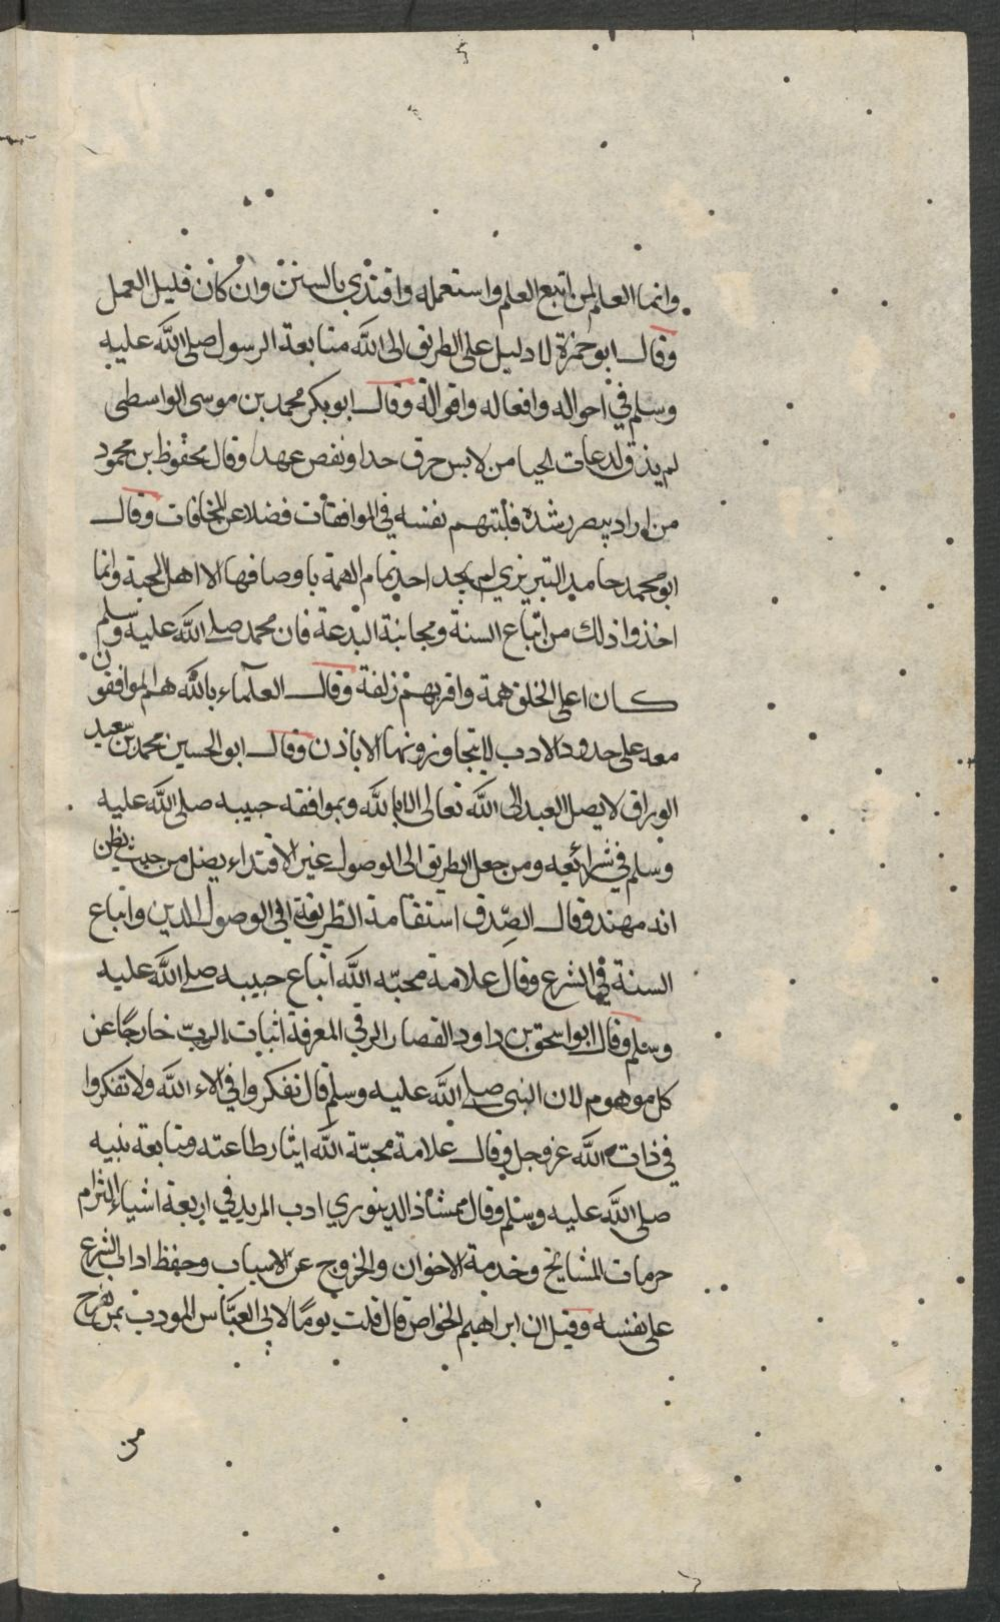 وانما العالم لمن اتبع العلم واستعمله واقتدي بالسنن وان كان قليل العمل
وقال ابو حمزة لا دليل على الطريق الى الله متابعة الرسول صلى الله عليه
وسلم في احواله وافعاله واقواله وقال ابو بكر محمد بن موسى الواسطى
لم يذق لدعات الحيا من لابس خرق حدا ونقص عهدا وقال محفوظ بن محمود
من اراد يبصر رشده فليتهم نفسه في الموافقات فضلا عن المخالفات وقال
ابو محمد حامد التبريزي لم يجد احد تمام الهمة باوصافها الا اهل المحبة وانما
اخذوا ذلك من اتباع السنة ومجانبة البدعة فان محمد صلى الله عليه وسلم
كان اعلى الخلق همة واقربهم زلفة وقال العلماء بالله هم الموافقون
معه على حدود الادب لا يتجاوزونها الا باذن وقال ابو الحسين محمد بن سعيد
الوراق لا يصل العبد الى الله تعالى الا بالله وبموافقه حبيبه صلى الله عليه
وسلم في شرائعه ومن جعل الطريق الى الوصول غير الاقتداء يضل من حيث يظن
انه مهتد وقال الصّدق استقامة الطريقة الى الوصول الدين واتباع
السنة في الشرع وقال علامة محبّه الله اتباع حبيبه صلى الله عليه
وسلم وقال ابو اسحق بن داود القصار الرقي المعرفة اثبات الربّ خارجًا عن
كل موهوم لان النبى صلى الله عليه وسلم قال تفكروا في الاء الله ولا تفكروا
في ذات الله عز وجل وقال علامة محبّة الله ايثار طاعته ومتابعة نبيه
صلى الله عليه وسلم وقال ممشاذ الدينوري ادب المريد في اربعة اشياء التزام
حرمات المشايخ وخدمة الاخوان والخروج عن الاسباب وحفظ اداب الشرع
على نفسه وقيل ان ابراهيم الخواص قال قلت يومًا لابى العبّاس المودب بمن تخرج
من